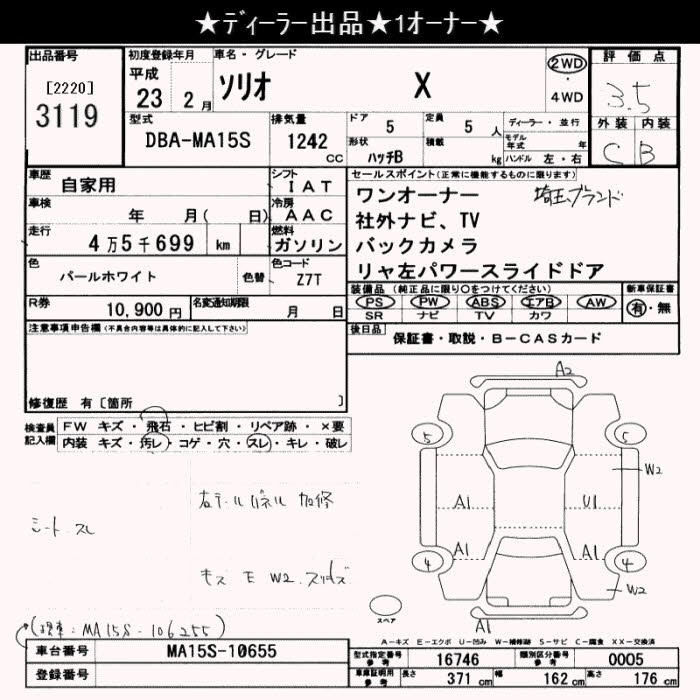 ★ディーラー出品★1オーナー★
出品番号
[2220]
3119
初度登録年月
平成
23 2月
車名・グレード
ソリオ X
2WD
4WD
評価点
3.5
外装 内装
C B
型式
DBA-MA15S
排気量
1242
CC
ドア
5
定員
5 人
ディーラー・並行
形状
ハッチB
積載
kg
モデル年式 年
ハンドル 左・右
車歴
自家用
シフト
IAT
車検
年 月( 日)
冷房
AAC
走行
4万5千699 km
燃料
ガソリン
色
パールホワイト
色替
色コード
Z7T
R券
10,900円
名変通知期限
月 日
セールスポイント(正常に機能するものに限ります)
ワンオーナー 埼玉ブランド
社外ナビ、TV
バックカメラ
リヤ左パワースライドドア
装備品(純正品に限り○をつけてください)
PS PW ABS エアB AW
SR ナビ TV カワ
新車保証書
有・無
後日品
保証書・取説・B-CASカード
注意事項申告欄(不具合内容等は具体的に記入して下さい)
修復歴 有[箇所 ]
検査員記入欄
FW キズ・飛石・ヒビ割・リペア跡・×要
内装 キズ・汚レ・コゲ・穴・スレ・キレ・破レ
シート スレ
右テールパネル 加修
キズ E W2.
A2
5
5
W2
A1
U1
A1
A1
4
4
W2
スペア
A1
(現車:MA15S-106255)
A-キズ E-エクボ U-凹み W-補修跡 S-サビ C-腐食 XX-交換済
車台番号
MA15S-10655
登録番号
型式指定番号 参考
16746
類別区分番号 参考
0005
車庫証明用 参考
長さ 371 cm
幅 162 cm
高さ 176 cm